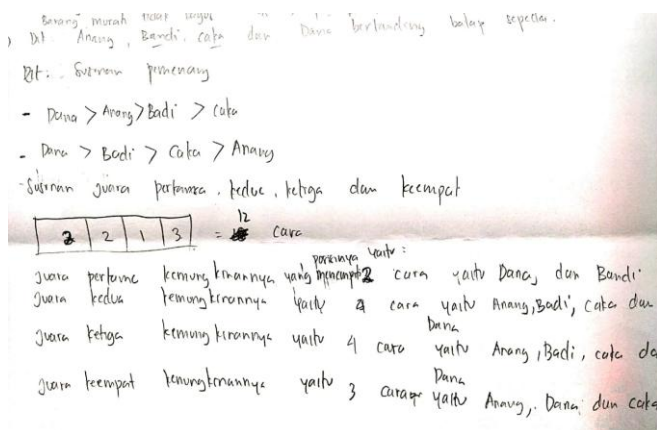 Barang murah tidak
Dit: Anang, Bandi, caka dan Dana bertanding balap sepeda.
Dit: Susunan pemenang
- Dana > Anang > Badi > Caka
- Dana > Badi > Caka > Anang
- Susunan juara pertama, kedua, ketiga dan keempat
2 2 1 3 = 12 cara
juara pertama kemungkinannya yang posisinya yaitu: 2 cara yaitu Dana, dan Bandi
juara kedua kemungkinannya yaitu 4 cara yaitu Anang, Badi, Caka dan Dana
juara ketiga kemungkinannya yaitu 4 cara yaitu Anang, Badi, caka da Dana
juara keempat kemungkinannya yaitu 3 cara yaitu Anang, Dana, dan caka